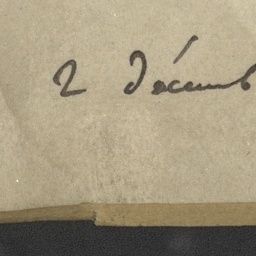 2 décemb